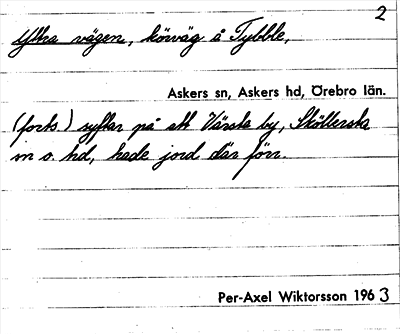 2
Yttra vägen, körväg å Tybble,
Askers sn, Askers hd, Örebro län.
(forts.) syftar på att Värsta by, Sköllersta
sn o. hd, hade jord där förr.
Per-Axel Wiktorsson 1963